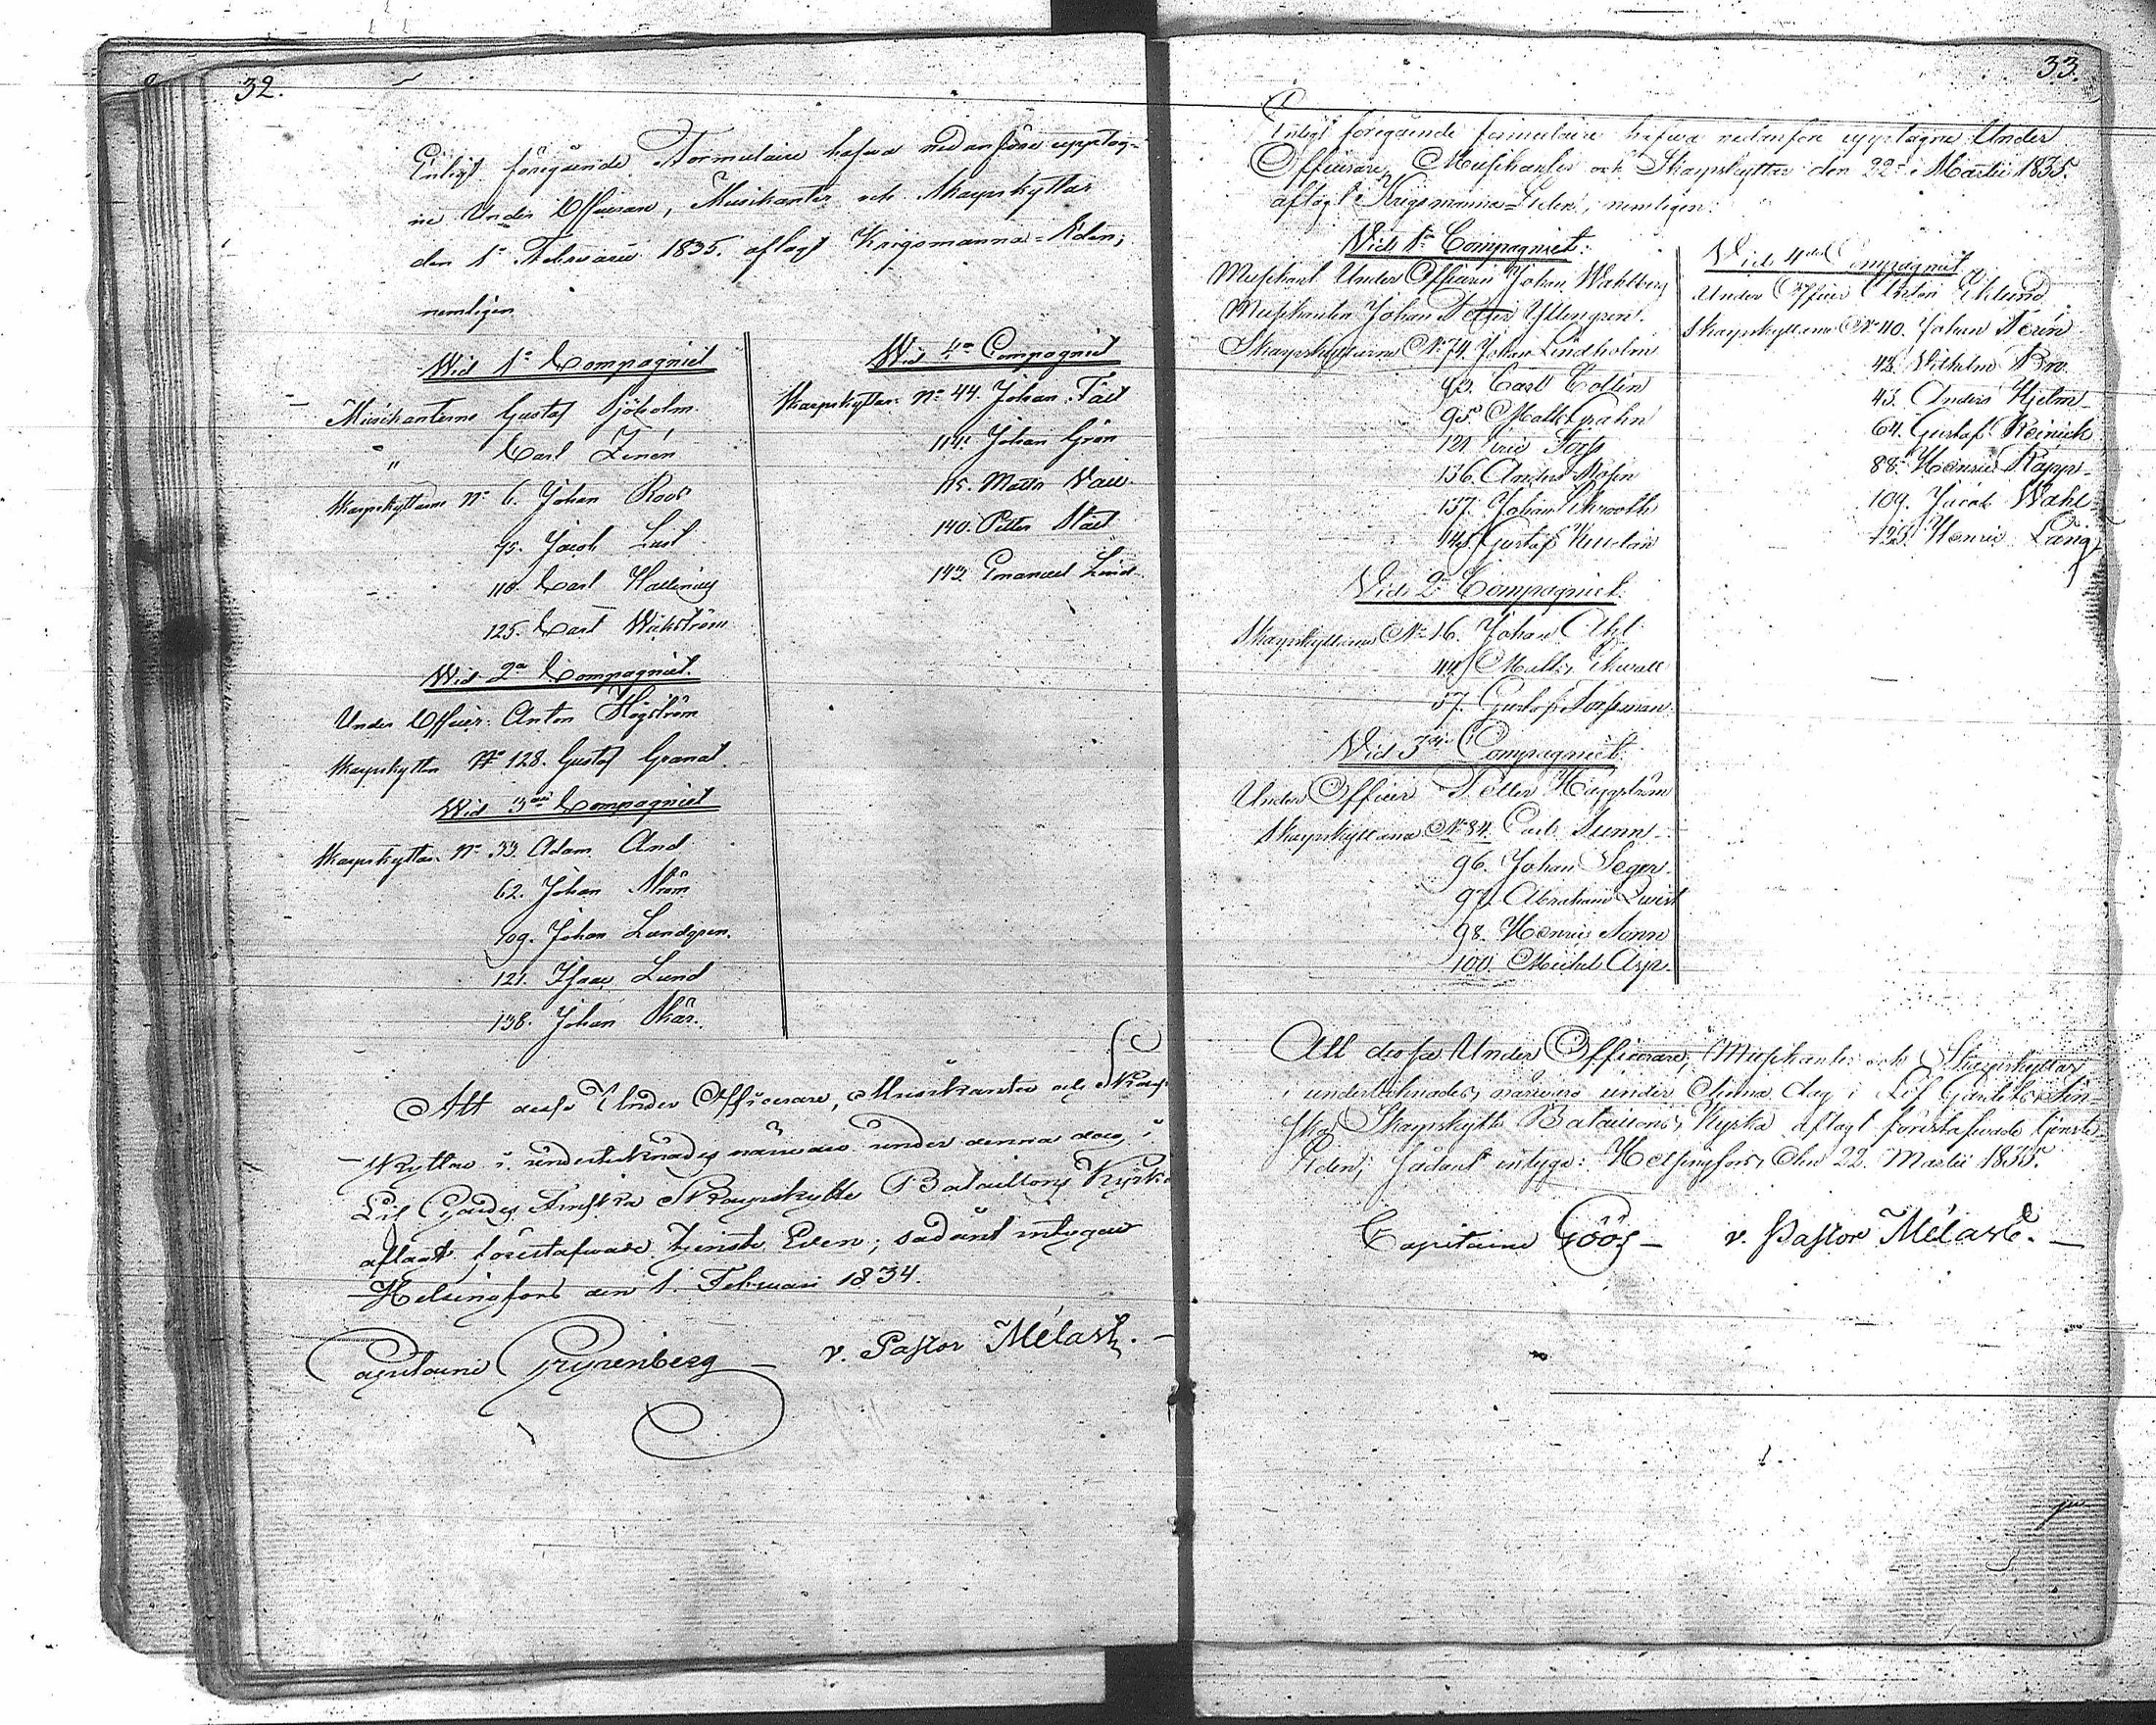 32.
Enligt föregående Formulaire hafwa nedanföre upptag-
ne Under Officerare, Musikanter och Skarpskyttar
den 1a Februarii 1835. aflagt Krigsmanna-Eden;
nemligen
Wid 1a Compagniet
Musikanterne Gustaf Sjöholm.
" Carl Zenén
Skarpskyttarne No 6. Johan Roos
95. Jacob Lust
110. Carl Hallenius
125. Carl Wickström
Wid 2a Compagniet.
Under Officer. Anton Högström
Skarpskytten No 128. Gustaf Granat.
Wid 3die Compagniet
Skarpskyttar No 33. Adam And
62. Johan Ström
109. Johan Lundgren.
121. Isaac Lund
138. Johan Skär.
Wid 4a Compagniet
Skarpskyttar No 44. Johan Fält
114. Johan Grön
115. Matts Wall
140. Petter Stål
143. Emanuel Lind
Att desse Under Officerare, Musikanter och Skarp-
skyttar i undertecknades närvaro under denna dag i
Lif Gardes Finska Skarpskytte Bataillons Kyrka
aflagt förestafwade tjenste Eden; sådant intygar
Helsingfors den 1. Februari 1834.
Capitaine Gripenberg v. Pastor Mélart.
33.
Enligt föregående formulaire hafwa nedanföre upptagne Under
Officerare, Musikanter och Skarpskyttar den 22a Martii 1835.
aflagt Krigsmanna-Eden, nemligen:
Vid 1a Compagniet:
Musikant Under Officeren Johan Wahlberg
Musikanten Johan Petter Yllengren.
Skarpskyttarne No 74. Johan Lindholm
93. Carl Collin
95. Matts Grahn
121. Eric Torp
136. Anders Rosen
137. Johan Ekrooth
145. Gustaf Neulan
Vid 2a Compagniet:
Skarpskyttarne No 16. Johan Ahl
44. Matts Ekwall
57. Gustaf Torpman
Vid 3die Compagniet:
Under Officer Petter Häggström
Skarpskyttarne No 84. Carl Sunn
96. Johan Seger.
97. Abraham Qwist
98. Henric Sonn
100. Michel Asp.
Vid 4de Compagniet
Under Officer Anton Eklund
Skarpskyttarne No 40. Johan Terén
42. Wilhelm Bro.
45. Anders Hjelm
64. Gustaf Reinick
88. Henric Rapp
109. Jacob Wahl
129. Henric Lång
Att desse Under Officerare, Musikanter och Skarpskyttar
i undertecknades närwaro under denna dag i Lif Gardets Fin-
ska Skarpskytte Bataillons Kyrka aflagt förestafwade tjenste-
Eden; sådant intyga: Helsingfors den 22 Martii 1835.
Capitaine Göös v. Pastor Mélart.